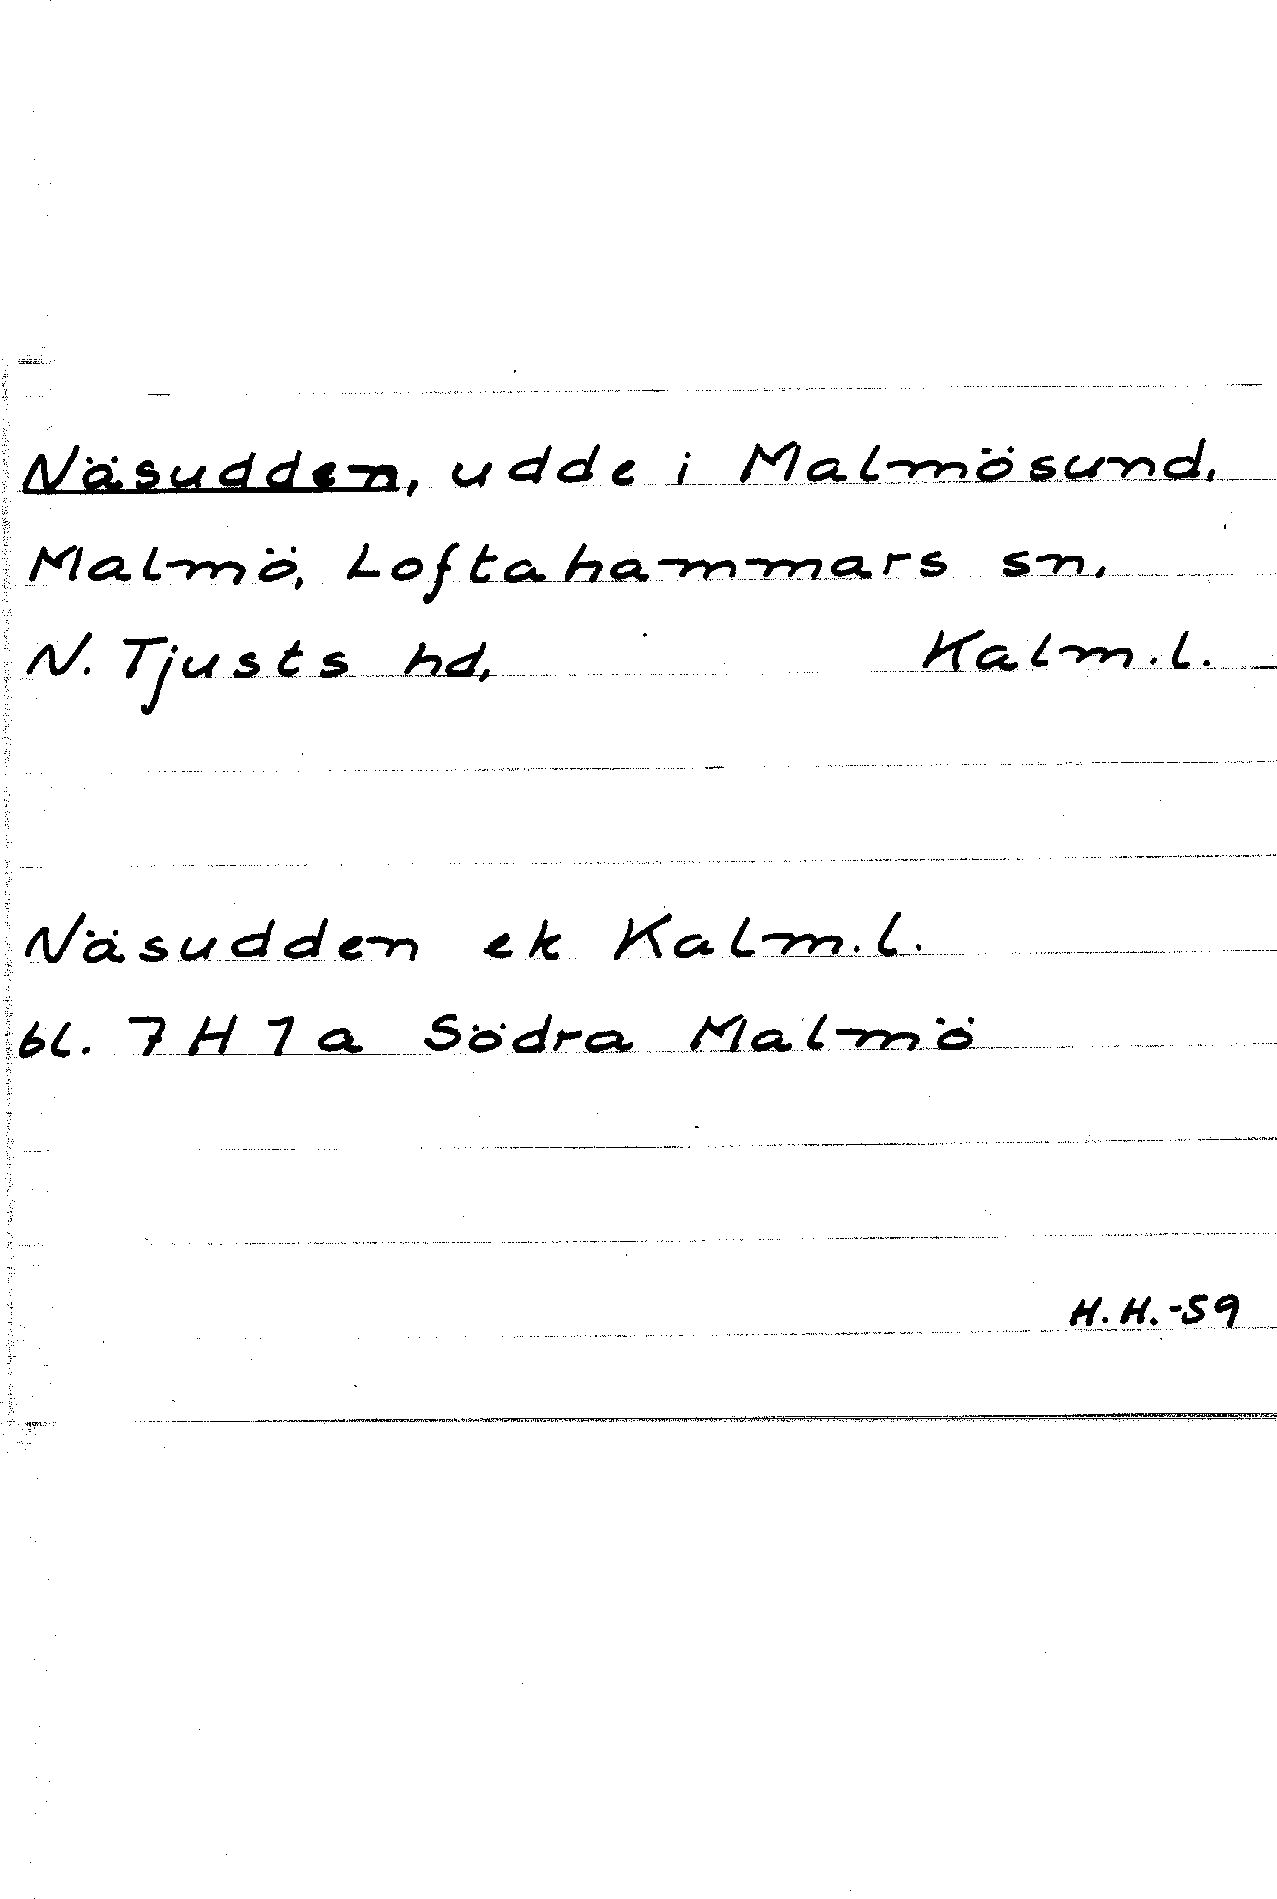 Näsudden, udde i Malmösund,
Malmö, Loftahammars sn,
N. Tjusts hd, Kalm.l.
Näsudden ek Kalm.l.
bl. 7 H 1 a Södra Malmö
H.H.-59